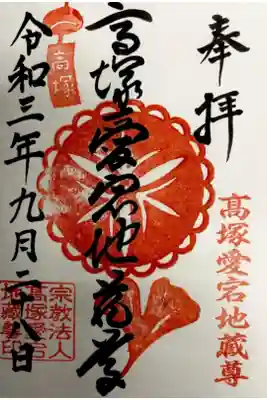 奉拝
髙塚愛宕地蔵尊
高塚愛宕地蔵尊
高塚
令和三年九月二十八日
宗教法人
高塚愛宕
地蔵尊印